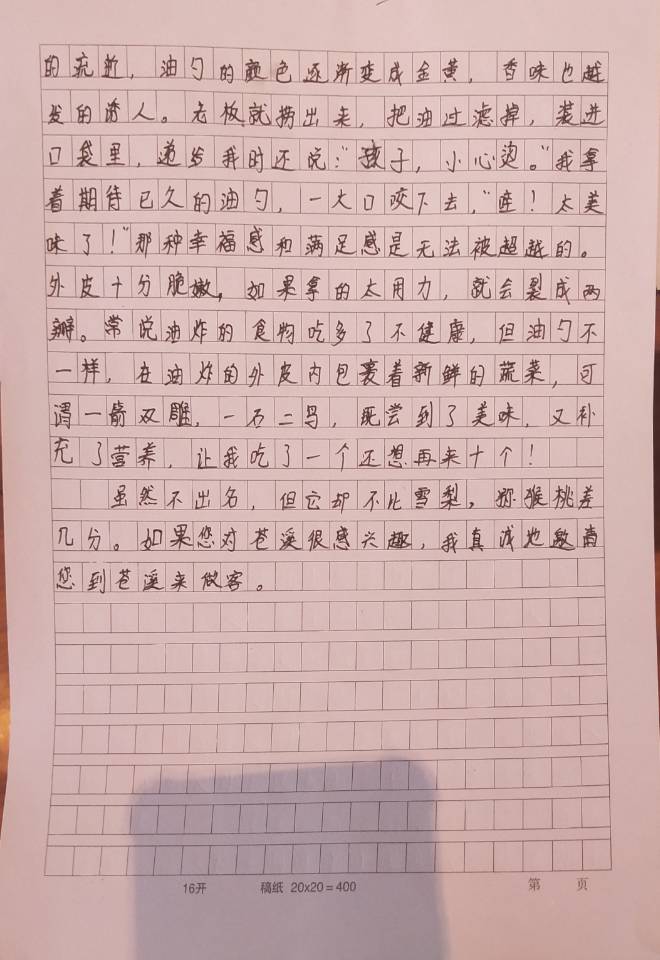 的流逝，油勺的颜色逐渐变成金黄，香味也越
发的诱人。老板就捞出来，把油过滤掉，装进
口袋里，递给我时还说：“孩子，小心烫。”我拿
着期待已久的油勺，一大口咬下去，“哇！太美
味了！”那种幸福感和满足感是无法被超越的。
外皮十分脆嫩，如果拿的太用力，就会裂成两
瓣。常说油炸的食物吃多了不健康，但油勺不
一样，在油炸的外皮内包裹着新鲜的蔬菜，可
谓一箭双雕，一石二鸟，既尝到了美味，又补
充了营养，让我吃了一个还想再来十个！
虽然不出名，但它却不比雪梨，猕猴桃差
几分。如果您对苍溪很感兴趣，我真诚地邀请
您到苍溪来做客。
16开 稿纸 20x20=400 第 页